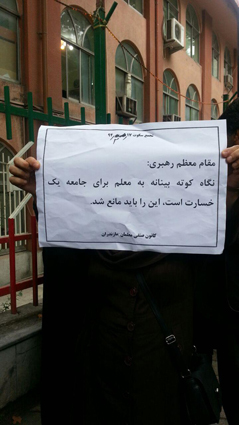 مقام معظم رهبری:
نگاه کوته بینانه به معلم برای جامعه یک
خسارت است، این را باید مانع شد.
کانون صنفی معلمان مازندران